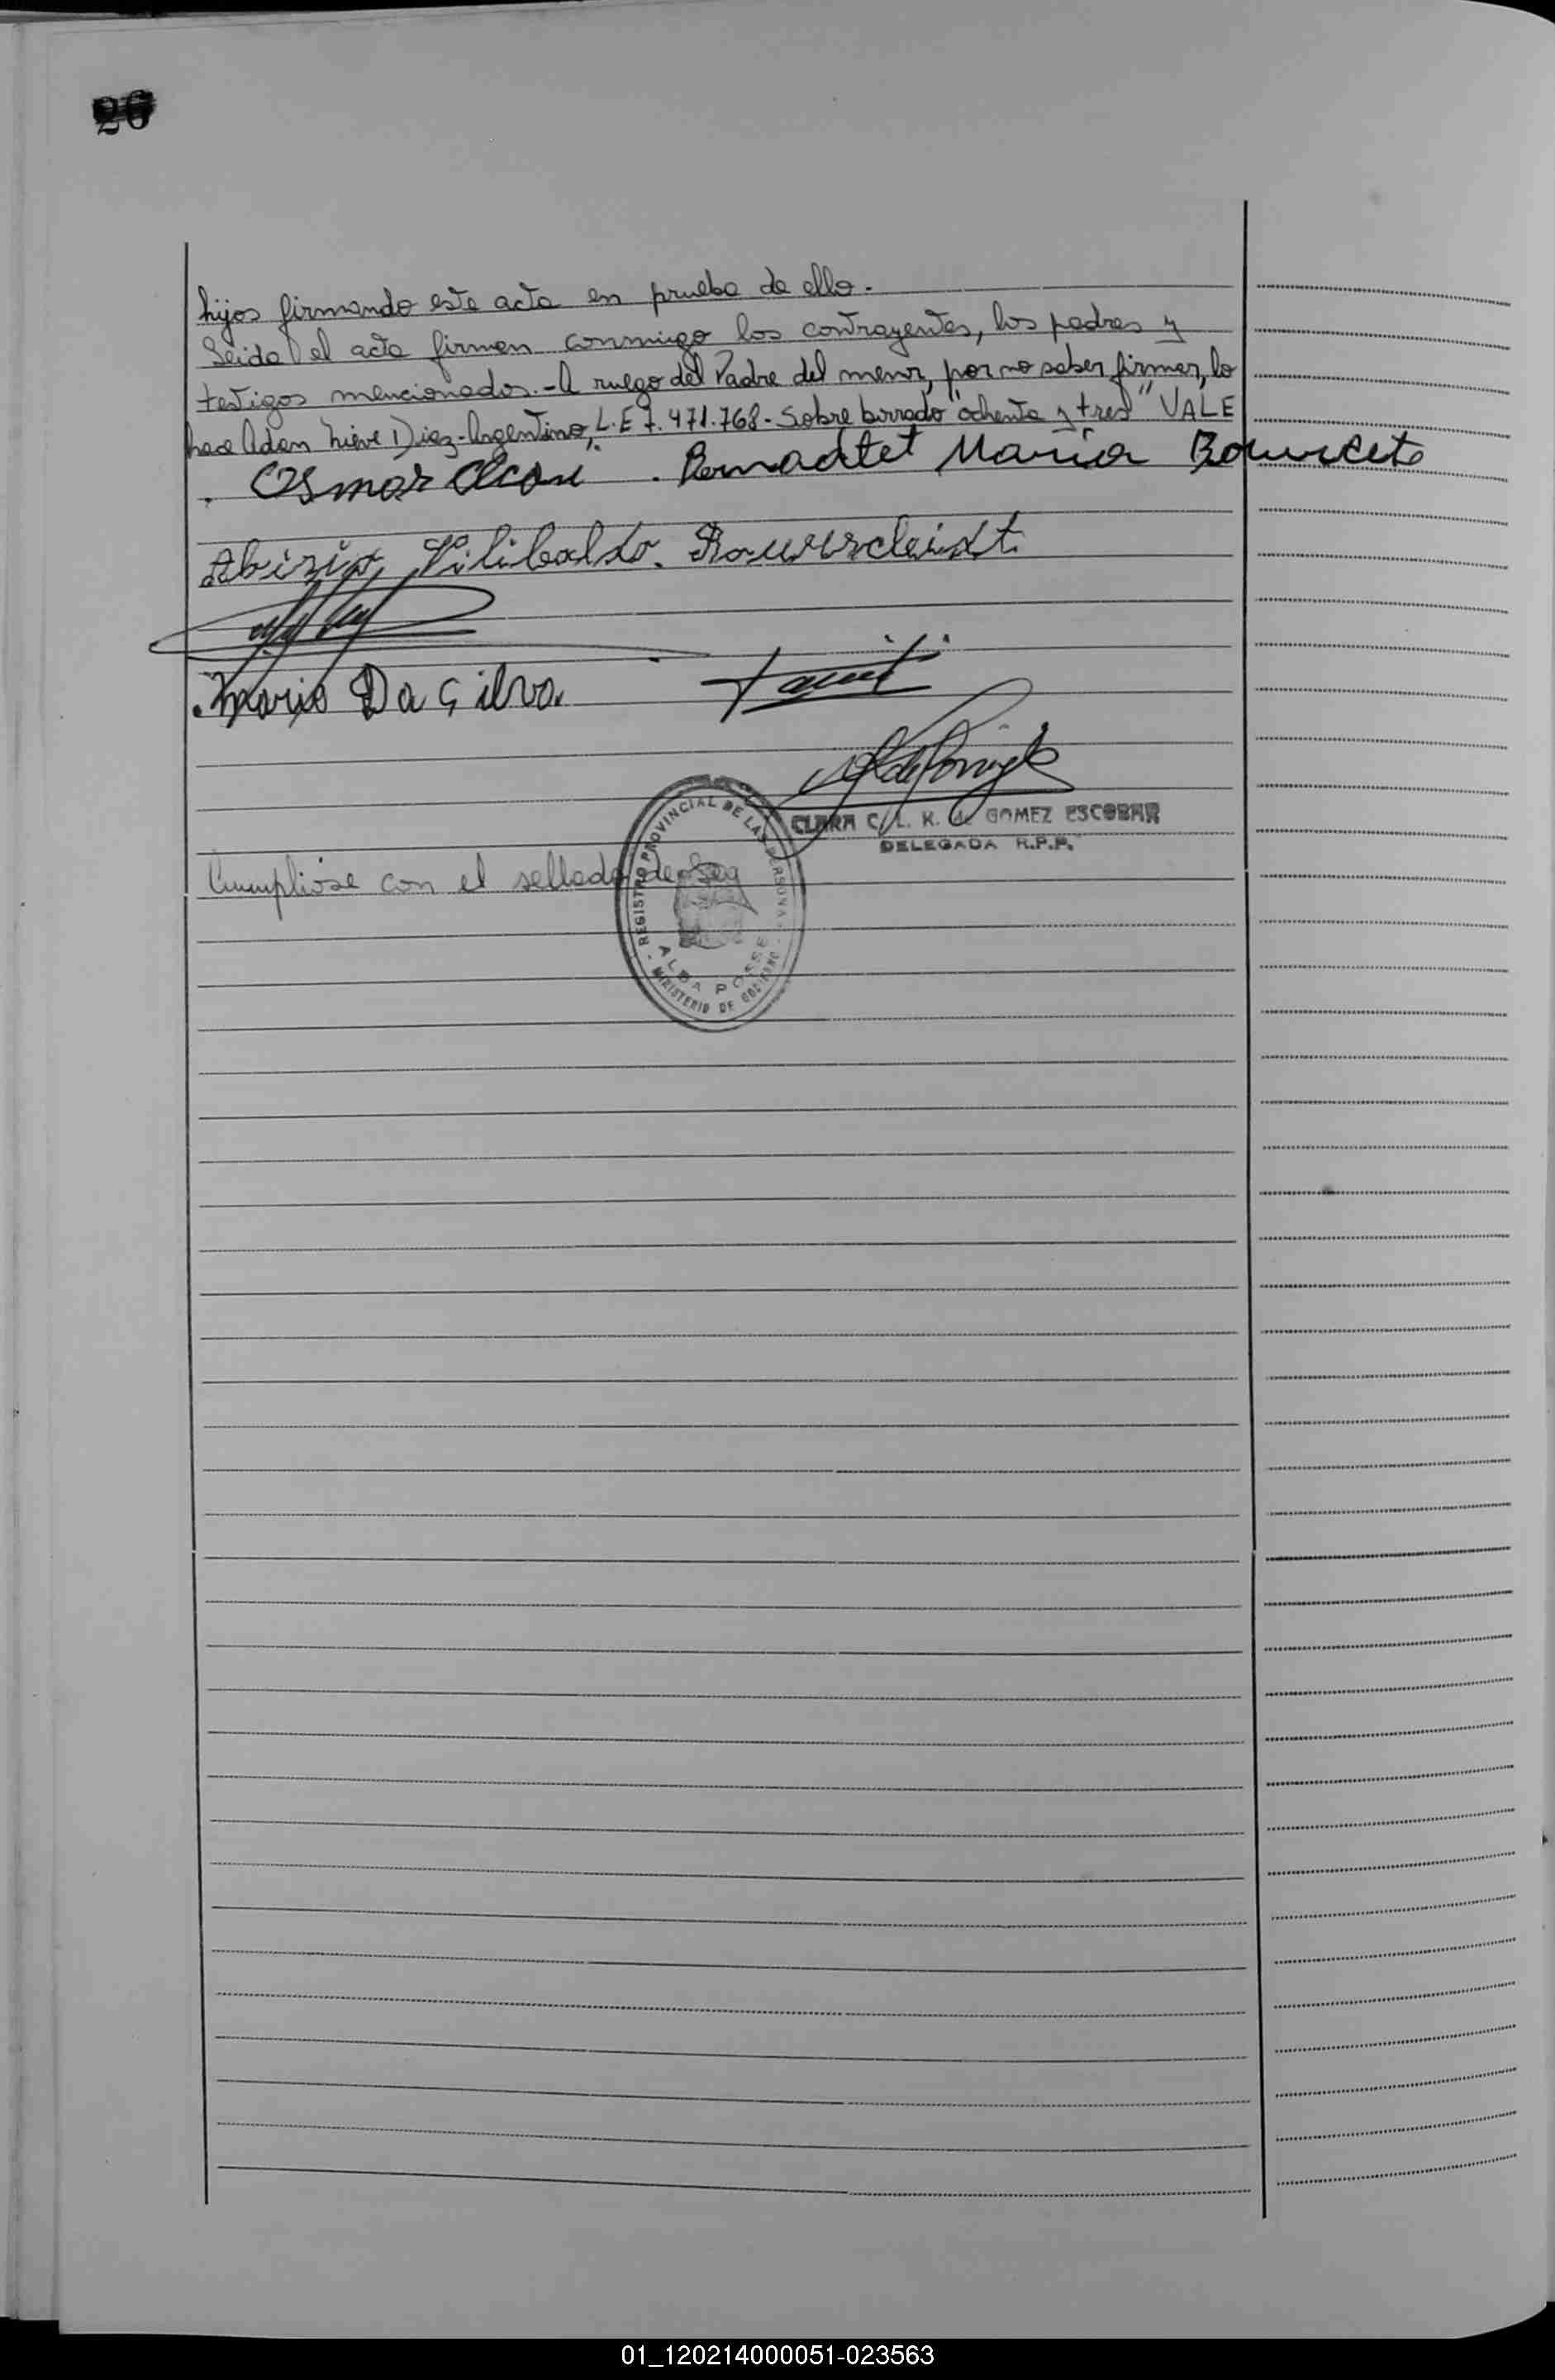 26
hijos firmando este acta en prueba de ello.-
Leida el acta firman conmigo los contrayentes, los padres y
testigos mencionados.- A ruego del Padre del menor, por no saber firmar, lo
hace Adan Nieve Diez-Argentino, L.E 7.471.768- Sobre borrado "ochenta y tres" VALE
. Osmar . Bernadtet Maria
Vilibaldo.
. Mario Da Silva
CLARA C. L. K. de GOMEZ ESCOBAR
DELEGADA R.P.P.
Cumpliose con el sellado de Ley
REGISTRO PROVINCIAL DE LAS PERSONAS
ALBA POSSE
- MINISTERIO DE GOBIERNO -
01_120214000051-023563